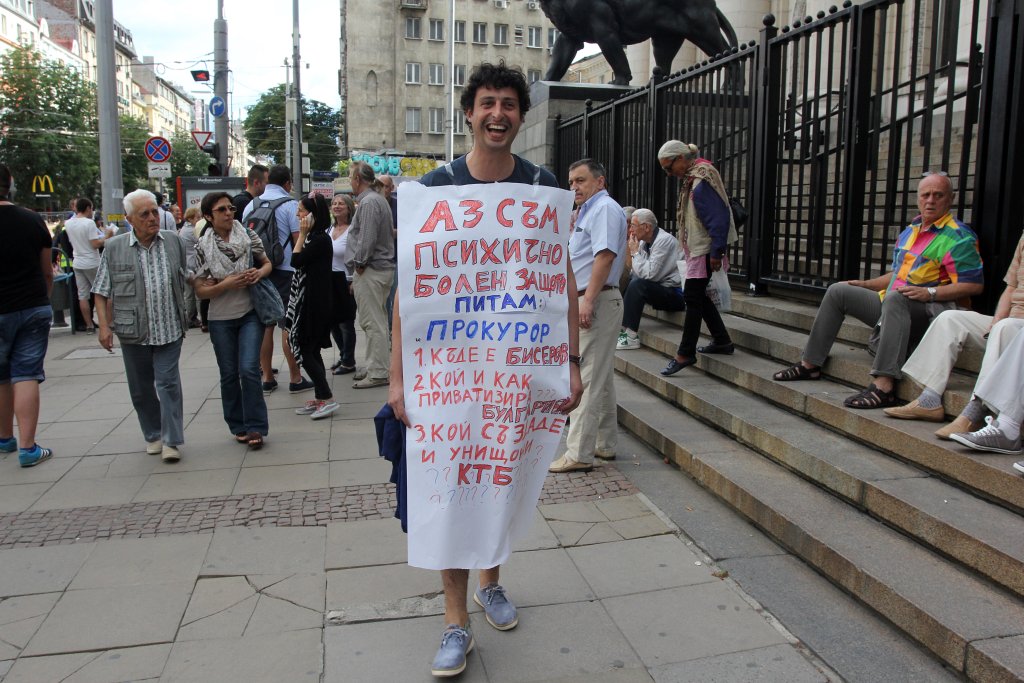 АЗ СЪМ
ПСИХИЧНО
БОЛЕН ЗАЩОТО
ПИТАМ:
„ПРОКУРОР
1. КЪДЕ Е БИСЕРОВ
2 КОЙ И КАК
ПРИВАТИЗИР ???
БУЛГАРТАБ
3. КОЙ СЪЗДАДЕ
И УНИЩОЖИ
?? КТБ ???
??????